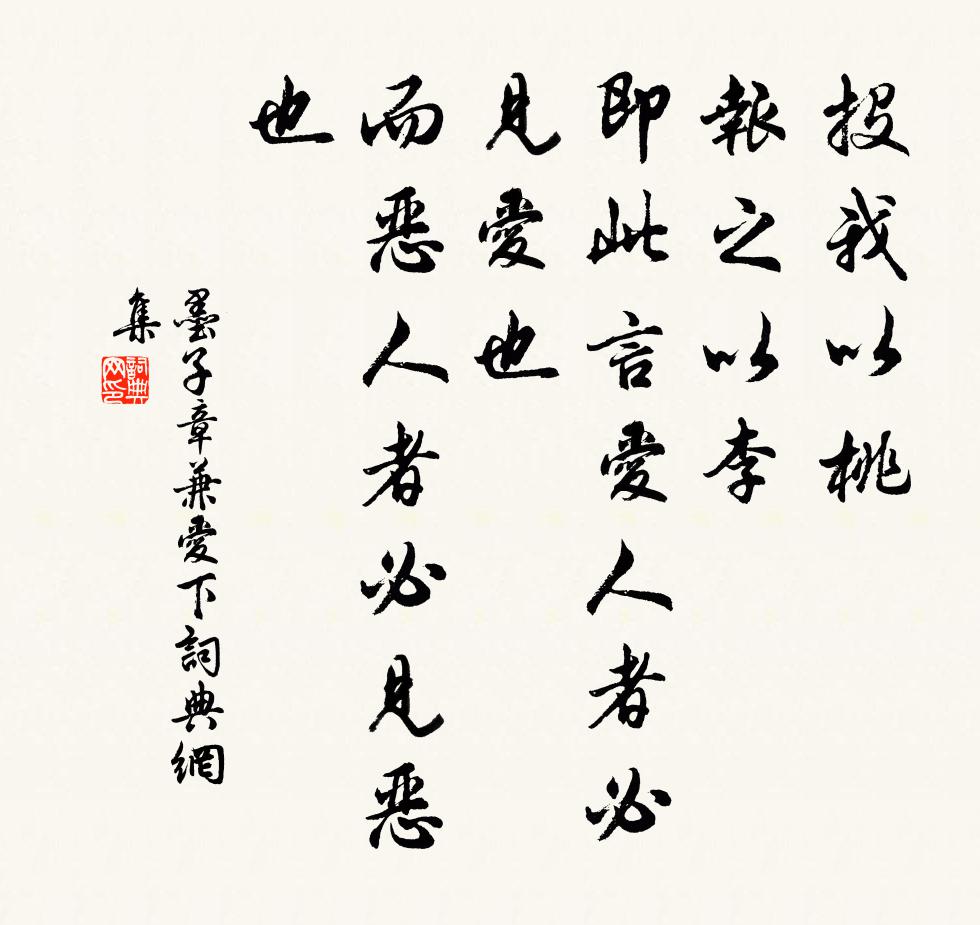 投我以桃
報之以李
即此言愛人者必
見愛也
而惡人者必見惡
也
墨子章兼愛下詞典網
集
詞典
网印